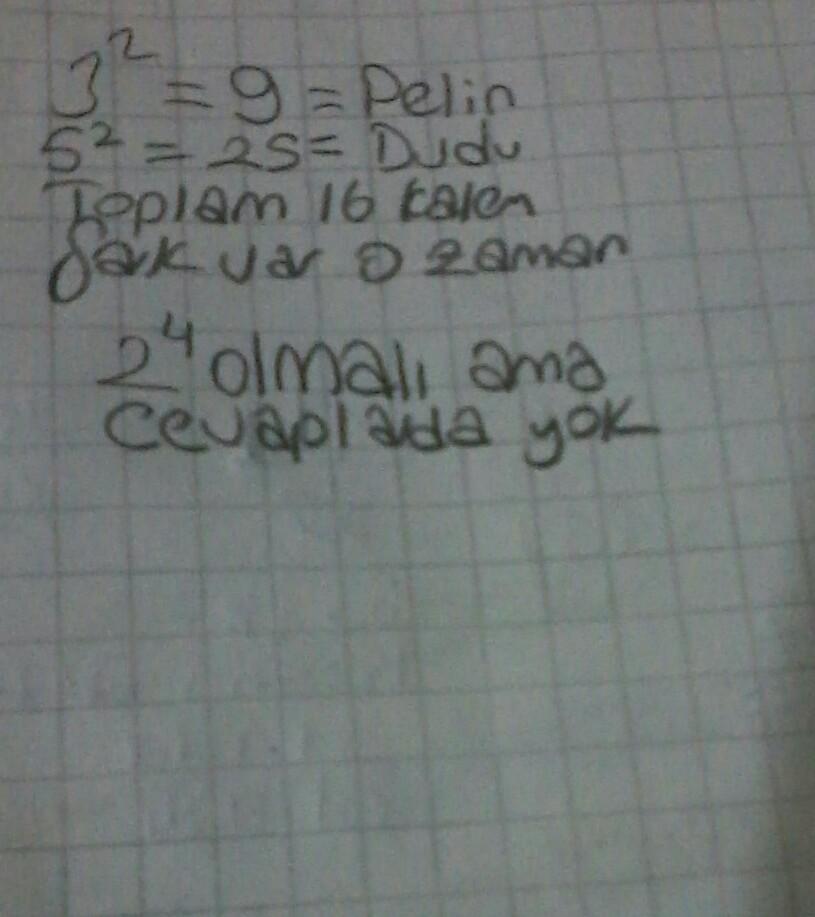 3² = 9 = Pelin
5² = 25 = Dudu
Toplam 16 kalem
fark var o zaman
2⁴ olmalı ama
cevaplarda yok